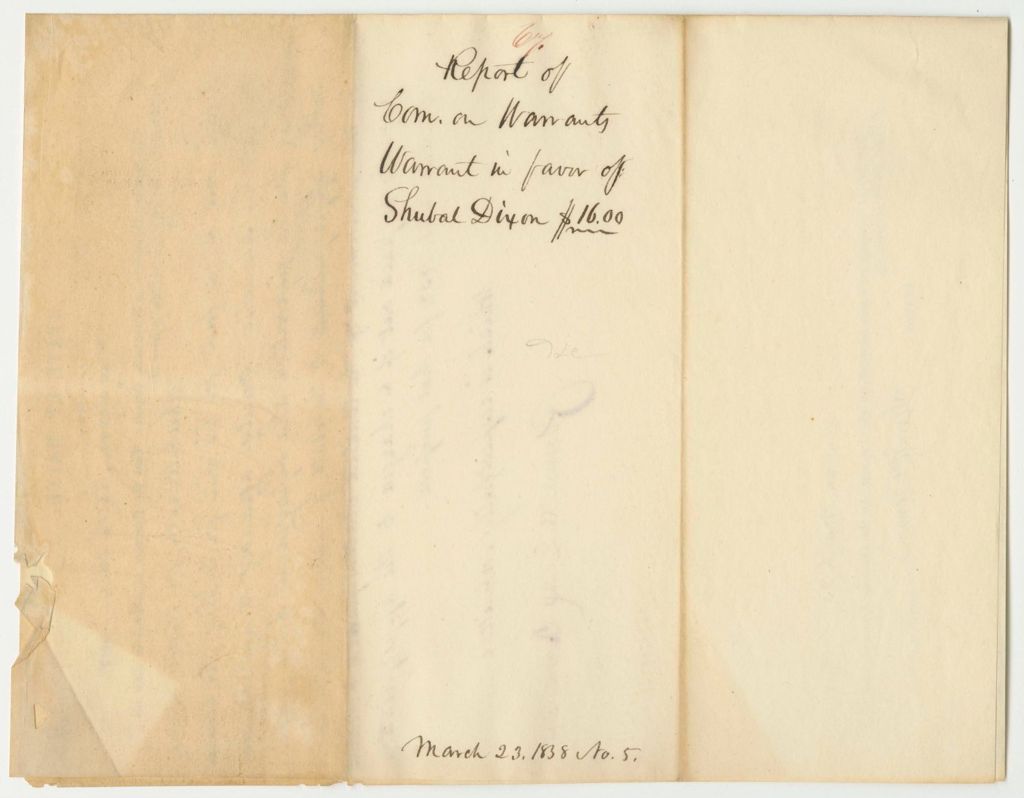 67.
Report of
Com. on Warrants
Warrant in favor of
Shubal Dixon $16.00
March 23. 1838 No. 5.